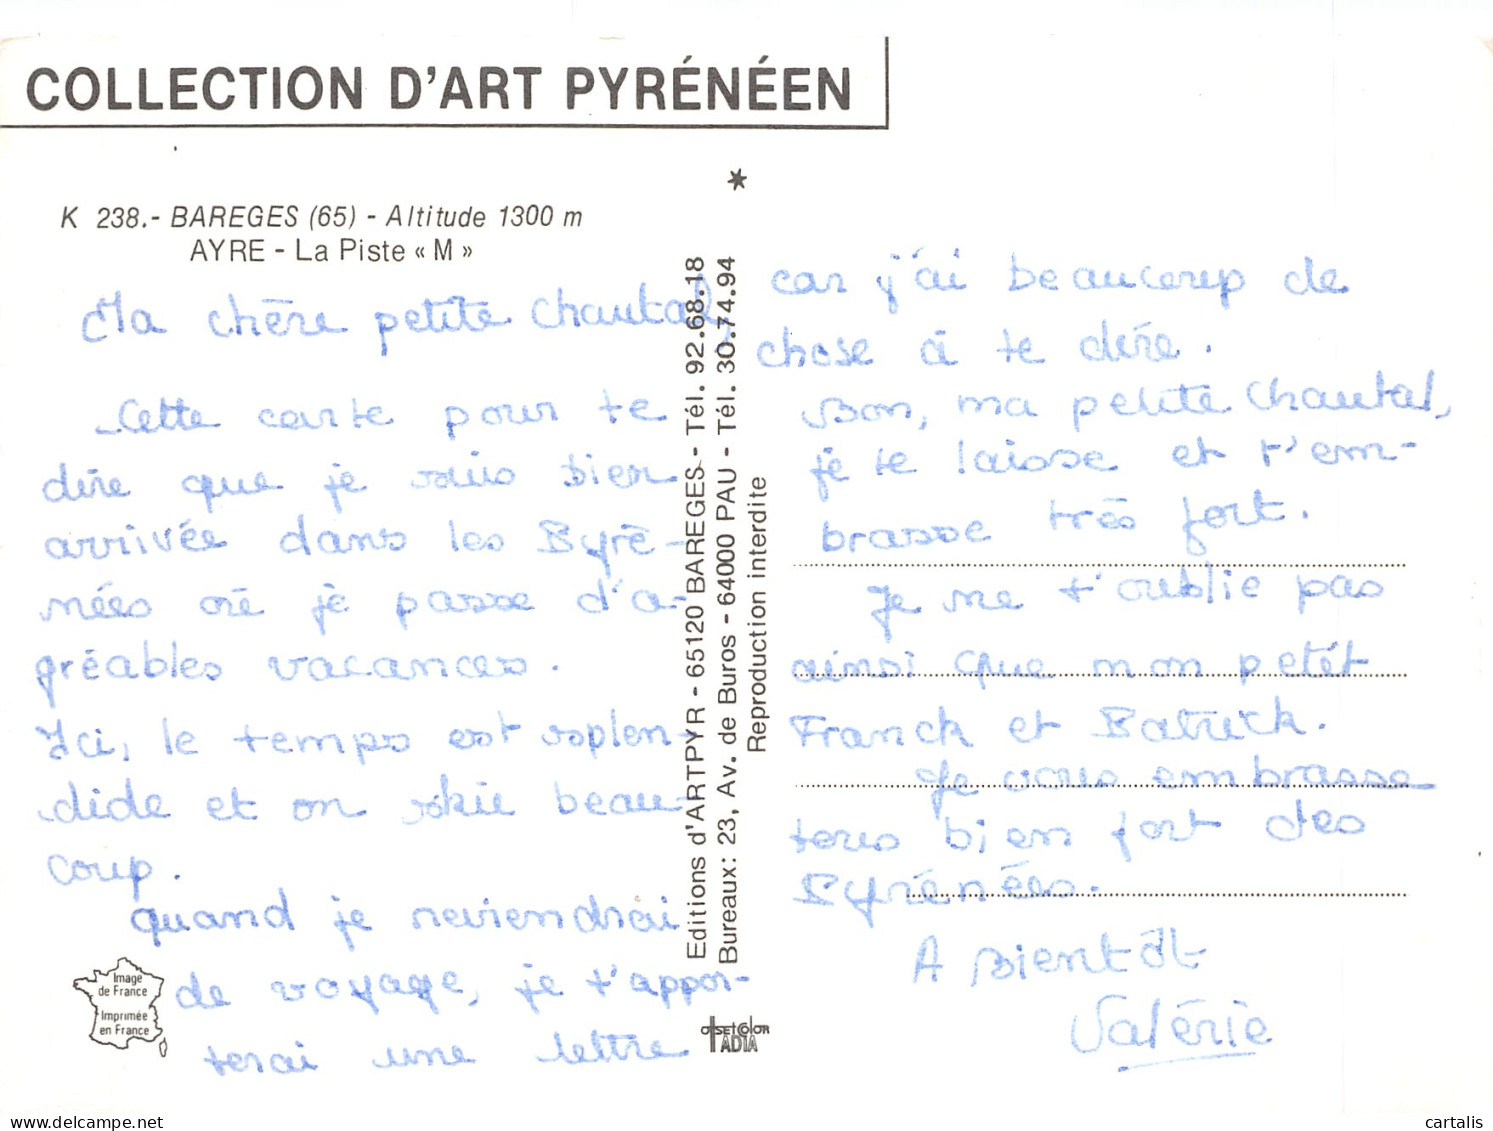 COLLECTION D'ART PYRÉNÉEN
K 238.- BAREGES (65) - Altitude 1300 m
AYRE - La Piste « M »
Ma chère petite Chantal,
Cette carte pour te
dire que je suis bien
arrivée dans les Pyré-
nées où je passe d'a-
gréables vacances.
Ici, le temps est splen-
dide et on skie beau-
coup.
quand je reviendrai
de voyage, je t'appor-
terai une lettre
Image
de France
Imprimée
en France
Editions d'ARTPYR - 65120 BAREGES - Tél. 92.68.18
Bureaux: 23, Av. de Buros - 64000 PAU - Tél. 30.74.94
Reproduction interdite
OFFSET COLOR
ADIA
car j'ai beaucoup de
chose à te dire.
Bon, ma petite Chantal,
je te laisse et t'em-
brasse très fort.
Je ne t'oublie pas
ainsi que mon petit
Franck et Patrick.
Je vous embrasse
tous bien fort des
Pyrénées.
A Bientôt
Valérie
cartalis